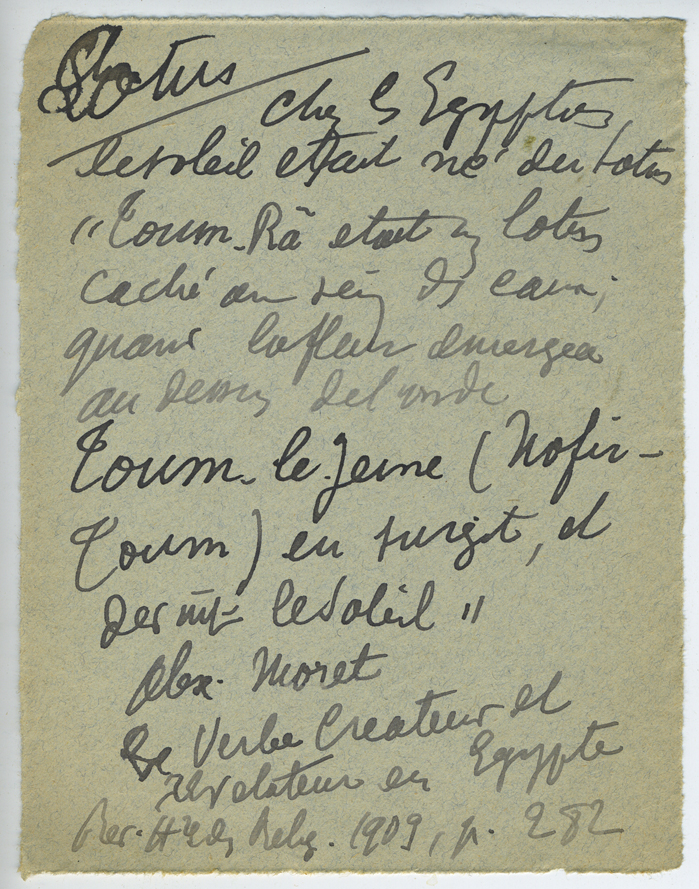 Lotus
chez les Egyptiens,
le soleil etait né du Lotus
"Toum-Râ etait un lotus
caché au sein des eaux;
quand la fleur emergea
au dessus de l'onde
Toum-le-Jeune (Nofir-
Toum) en surgit, et
devint le soleil"
Alex. Moret
Le Verbe Createur et
revelateur en Egypte
Rev. H^re des Relig. 1909, p. 282